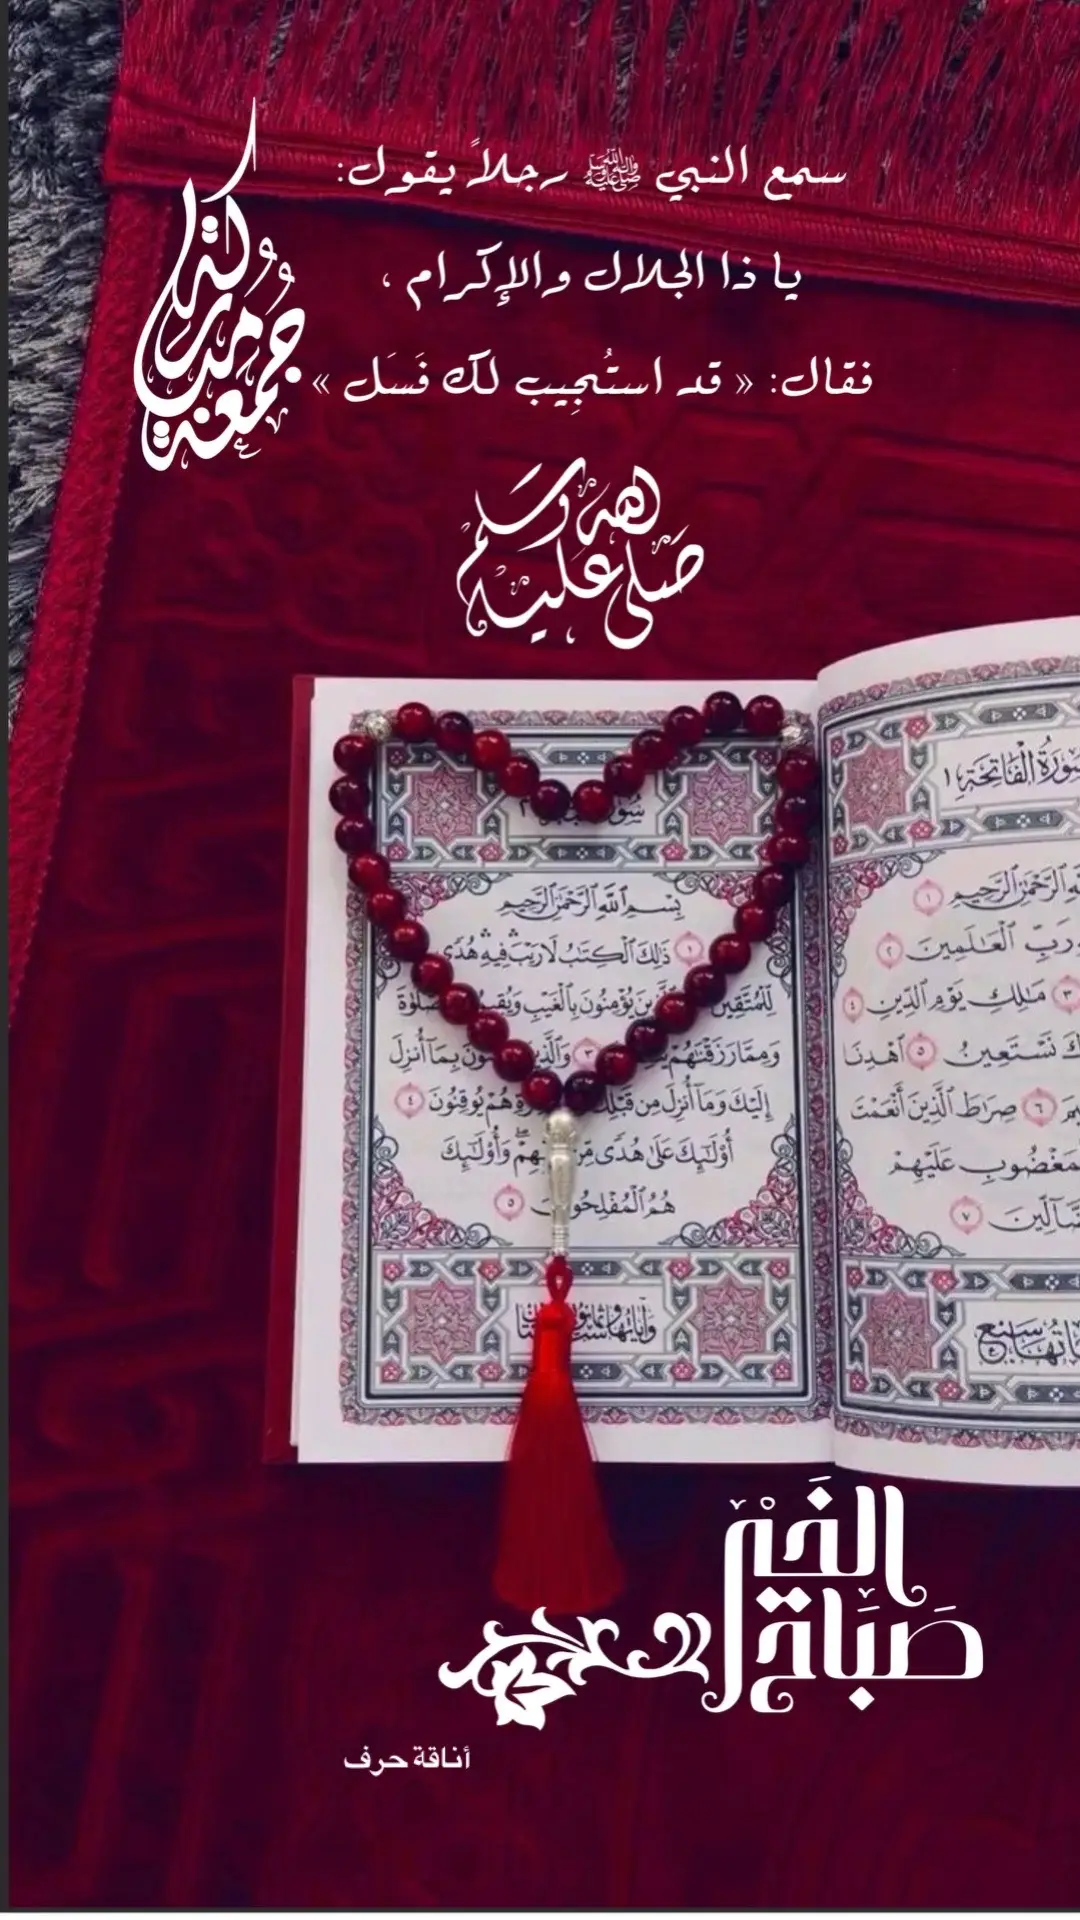 سمع النبي ﷺ رجلاً يقول:
يا ذا الجلال والإكرام ،
فقال: « قد استُجِيب لك فَسَل »
جُمعة مباركة
صلى الله عليه وسلم
سُورَةُ الْفَاتِحَةِ ١
ٱلرَّحْمَٰنِ ٱلرَّحِيمِ ١
رَبِّ ٱلْعَٰلَمِينَ ٢
٣ مَٰلِكِ يَوْمِ ٱلدِّينِ ٤
نَسْتَعِينُ ٥ ٱهْدِنَا
٦ صِرَٰطَ ٱلَّذِينَ أَنْعَمْتَ
ٱلْمَغْضُوبِ عَلَيْهِمْ
ٱلضَّآلِّينَ ٧
بِسْمِ ٱللَّهِ ٱلرَّحْمَٰنِ ٱلرَّحِيمِ
١ ذَٰلِكَ ٱلْكِتَٰبُ لَا رَيْبَ فِيهِ هُدًى
لِّلْمُتَّقِينَ يُؤْمِنُونَ بِٱلْغَيْبِ
وَمِمَّا رَزَقْنَٰهُمْ ٣ بِمَآ أُنزِلَ
إِلَيْكَ وَمَآ أُنزِلَ مِن قَبْلِكَ هُمْ يُوقِنُونَ ٤
أُو۟لَٰٓئِكَ عَلَىٰ هُدًى مِّن وَأُو۟لَٰٓئِكَ
هُمُ ٱلْمُفْلِحُونَ ٥
صَبَاحُ الخَيْر
أناقة حرف